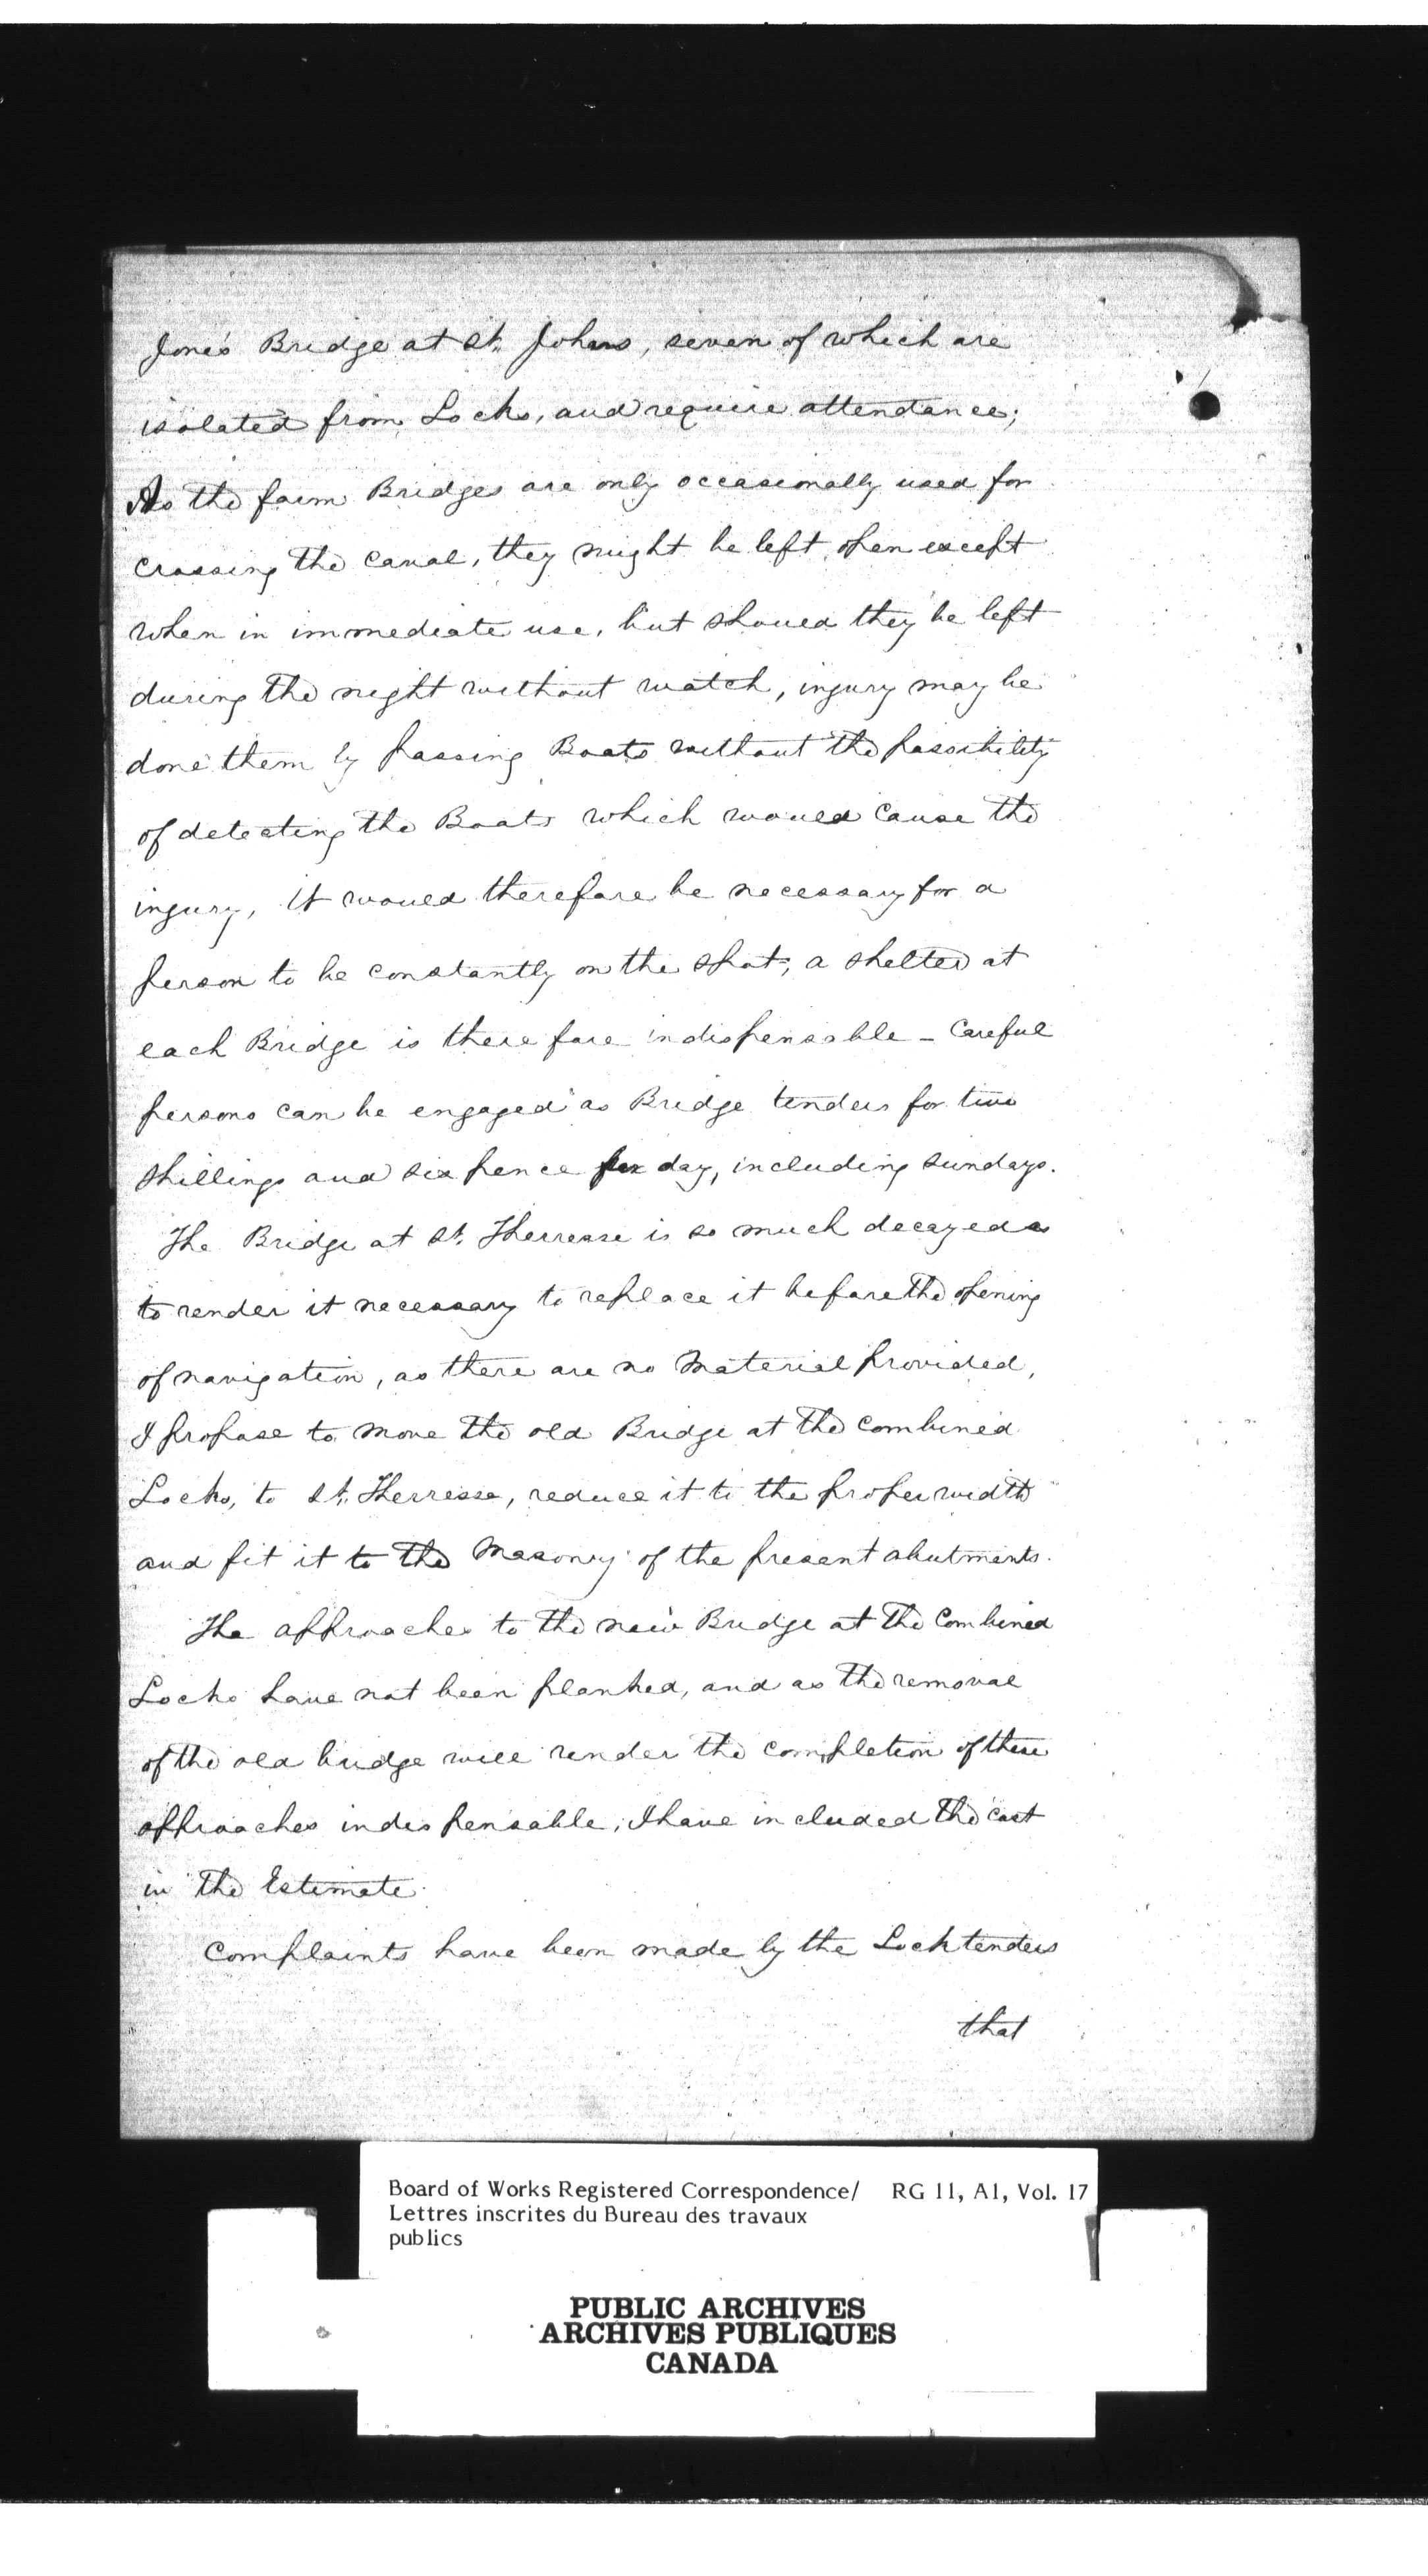 Jones Bridge at St. Johns, seven of which are
isolated from Locks, and require attendance;
As the farm Bridges are only occasionally used for
crossing the canal, they might be left open except
when in immediate use, but should they be left
during the night without watch, injury may be
done them by passing Boats without the possibility
of detecting the Boats which would cause the
injury, it would therefore be necessary for a
person to be constantly on the spot, a shelter at
each Bridge is therefore indispensable - Careful
persons can be engaged as Bridge tenders for two
shillings and six pence per day, including sundays.
The Bridge at St. Therresse is so much decayed as
to render it necessary to replace it before the opening
of navigation, as there are no Material provided,
I propose to move the old Bridge at the combined
Locks, to St. Therresse, reduce it to the proper width
and fit it to the Masonry of the present abutments.
The approaches to the new Bridge at the Combined
Locks have not been planked, and as the removal
of the old bridge will render the completion of these
approaches indispensable, I have included the cost
in the Estimate.
Complaints have been made by the Locktenders
that
Board of Works Registered Correspondence/ RG 11, A1, Vol. 17
Lettres inscrites du Bureau des travaux
publics
PUBLIC ARCHIVES
ARCHIVES PUBLIQUES
CANADA